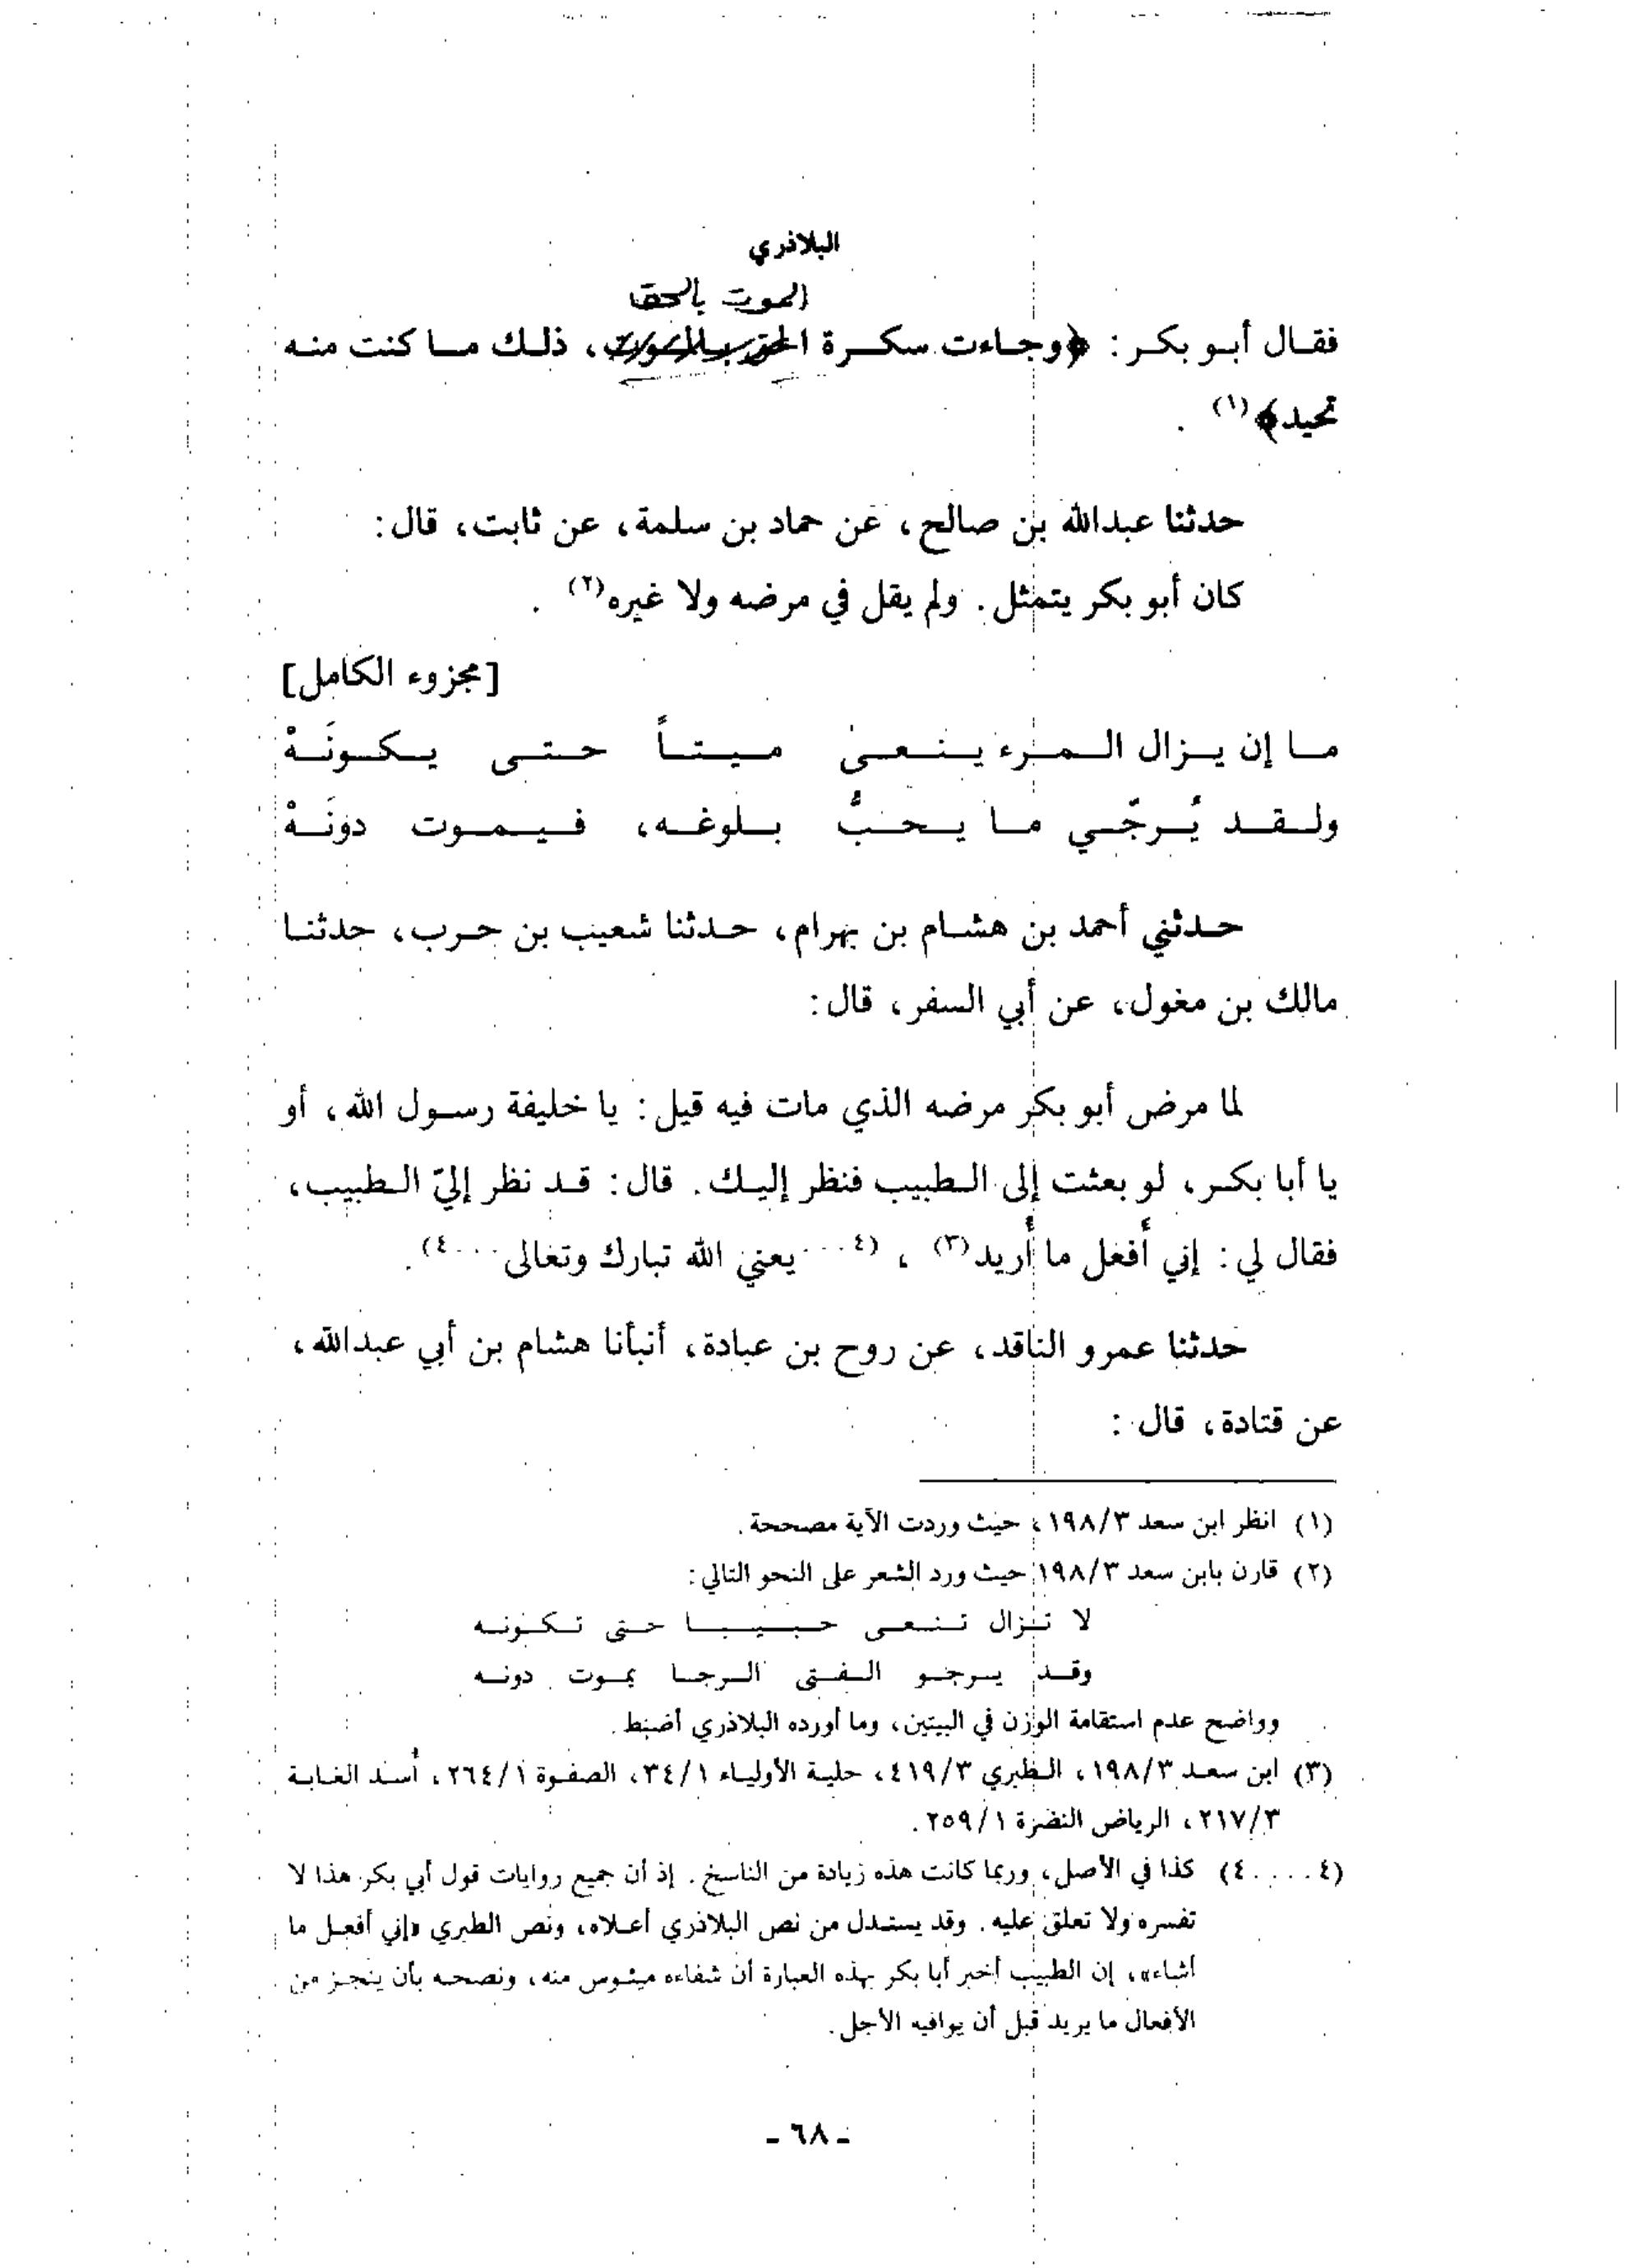 البلاذري
الموت بالحق
فقال أبو بكر: ﴿وجاءت سكرة الحق بالموت، ذلك ما كنت منه
تحيد﴾(١) .
حدثنا عبدالله بن صالح، عن حماد بن سلمة، عن ثابت، قال:
كان أبو بكر يتمثل. ولم يقل في مرضه ولا غيره(٢) .
[مجزوء الكامل]
ما إن يزال المرء ينعى ميتاً حتى يكونَهْ
ولقد يُرجّي ما يحبُّ بلوغه، فيموت دونَهْ
حدثني أحمد بن هشام بن بهرام، حدثنا شعيب بن حرب، حدثنا
مالك بن مغول، عن أبي السفر، قال:
لما مرض أبو بكر مرضه الذي مات فيه قيل: يا خليفة رسول الله، أو
يا أبا بكر، لو بعثت إلى الطبيب فنظر إليك. قال: قد نظر إليّ الطبيب،
فقال لي: إني أَفعل ما أُريد(٣) ، (٤...يعني الله تبارك وتعالى...٤).
حدثنا عمرو الناقد، عن روح بن عبادة، أنبأنا هشام بن أبي عبدالله،
عن قتادة، قال:
(١) انظر ابن سعد ١٩٨/٣، حيث وردت الآية مصححة.
(٢) قارن بابن سعد ١٩٨/٣ حيث ورد الشعر على النحو التالي:
لا تزال تنعى حبيبا حتى تكونه
وقد يرجو الفتى الرجا يموت دونه
وواضح عدم استقامة الوزن في البيتين، وما أورده البلاذري أضبط.
(٣) ابن سعد ١٩٨/٣، الطبري ٤١٩/٣، حلية الأولياء ٣٤/١، الصفوة ٢٦٤/١، أُسد الغابة
٢١٧/٣، الرياض النضرة ٢٥٩/١.
(٤....٤) كذا في الأصل، وربما كانت هذه زيادة من الناسخ. إذ أن جميع روايات قول أبي بكر هذا لا
تفسره ولا تعلق عليه. وقد يستدل من نص البلاذري أعلاه، ونص الطبري «إني أفعل ما
أشاء»، إن الطبيب أخبر أبا بكر بهذه العبارة أن شفاءه ميئوس منه، ونصحه بأن ينجز من
الأفعال ما يريد قبل أن يوافيه الأجل.
- ٦٨ -